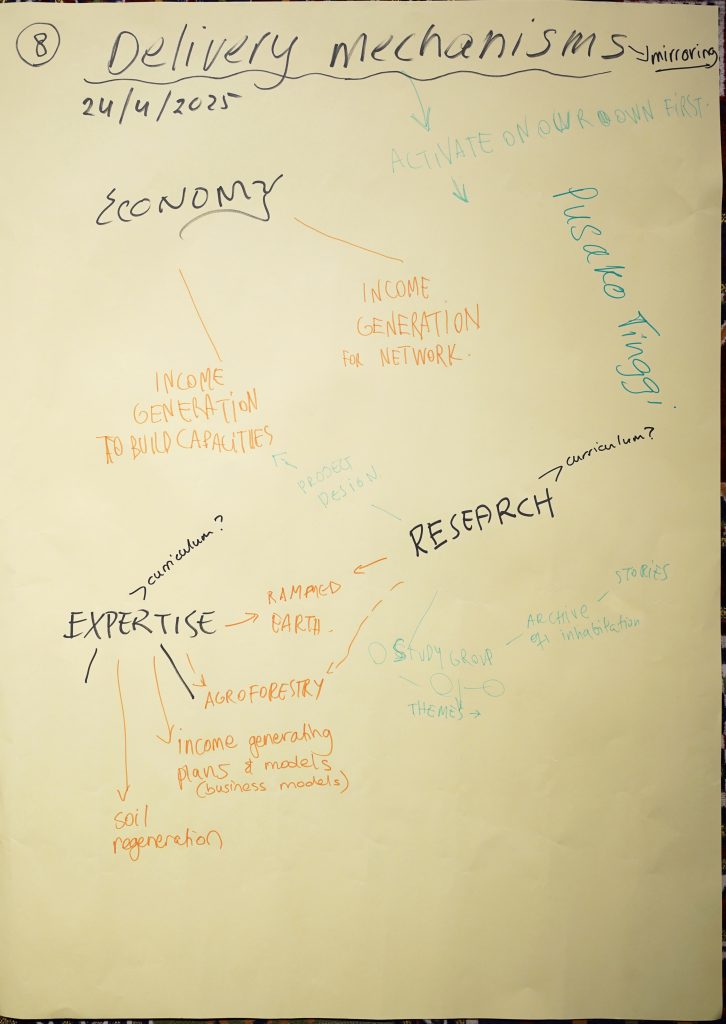 8
Delivery mechanisms → mirroring
24/4/2025
ACTIVATE ON OUR OWN FIRST.
ECONOMY
Pusako Tinggi
INCOME
GENERATION
FOR NETWORK.
INCOME
GENERATION
TO BUILD CAPACITIES
PROJECT
DESIGN
curriculum?
RESEARCH
curriculum?
EXPERTISE
RAMMED
EARTH.
STORIES
ARCHIVE
of inhabitation
STUDY GROUP
THEMES →
AGROFORESTRY
income generating
plans & models
(business models)
soil
regeneration